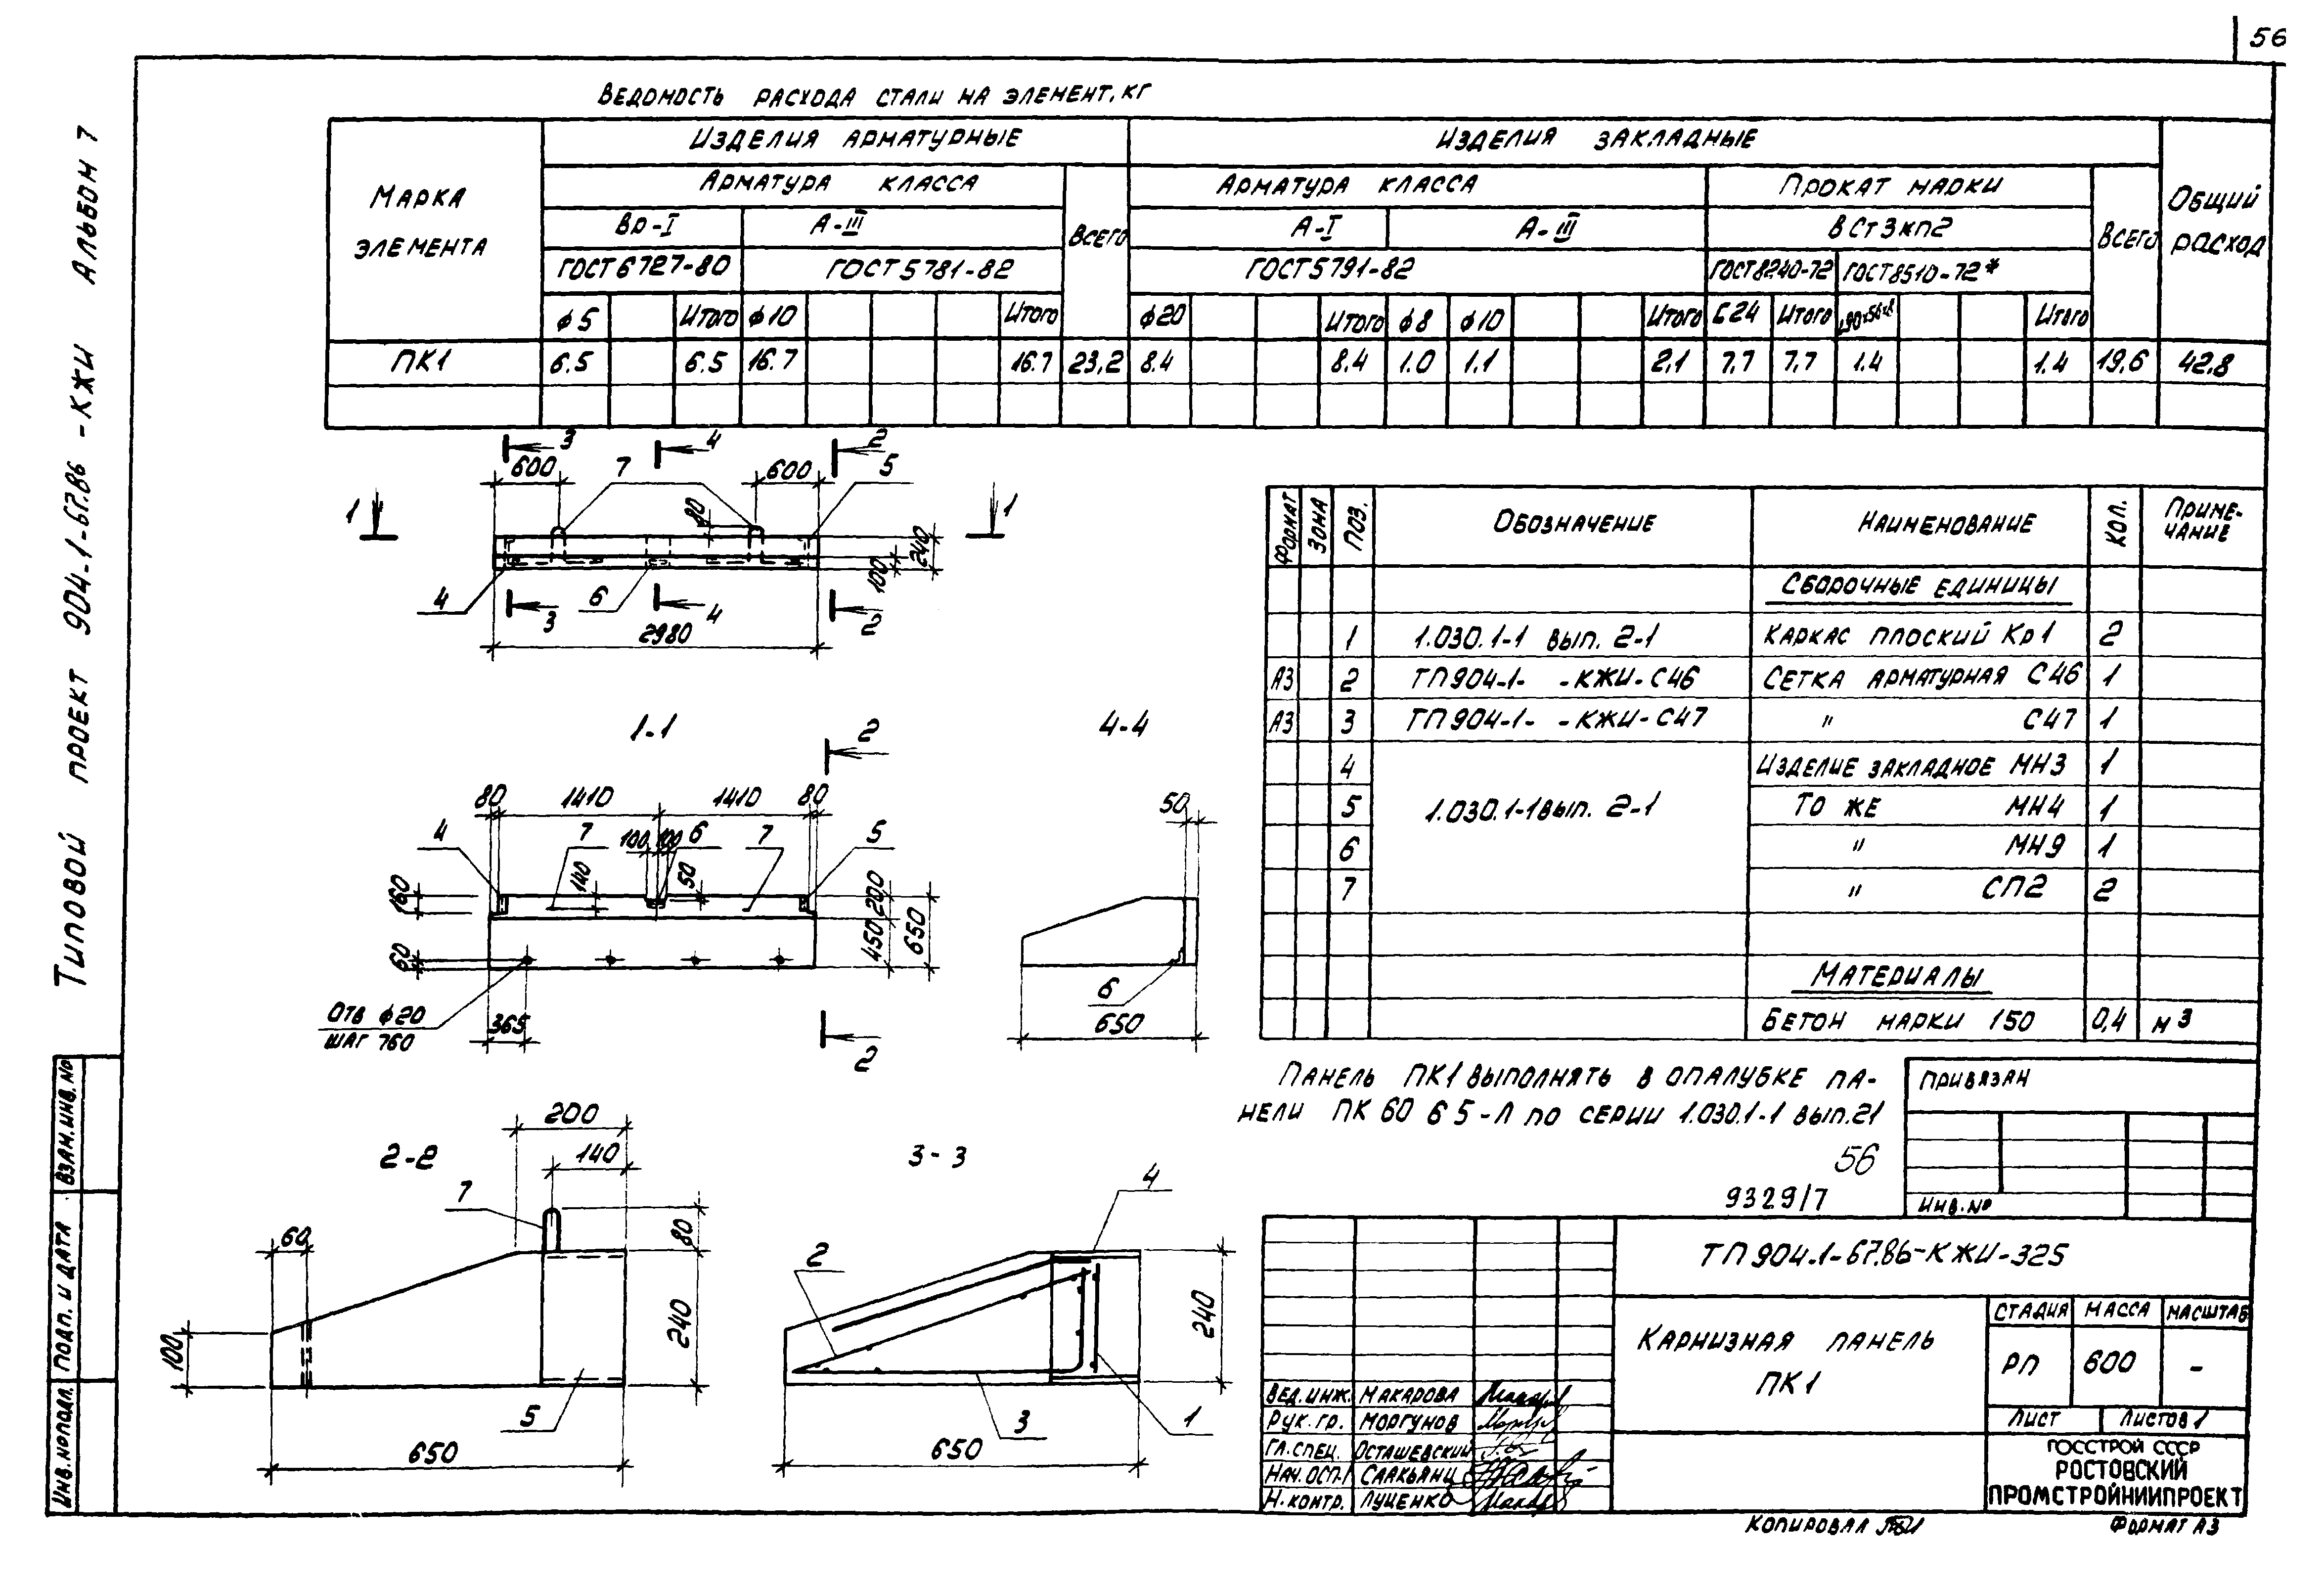 56
Типовой проект 904-1-67.86 -КЖИ Альбом 7
Ведомость расхода стали на элемент, кг
Марка элемента
Изделия арматурные
Изделия закладные
Общий расход
Арматура класса
Всего
Арматура класса
Прокат марки
Всего
Вр-I
А-III
А-I
А-III
ВСт3кп2
ГОСТ 6727-80
ГОСТ 5781-82
ГОСТ 5791-82
ГОСТ8240-72
ГОСТ8510-72*
ф5 Итого ф10 Итого ф20 Итого ф8 ф10 Итого С24 Итого ∟90×56×8 Итого
ПК1 6.5 6.5 16.7 16.7 23,2 8.4 8.4 1.0 1.1 2,1 7,7 7,7 1.4 1.4 19,6 42,8
3 4 2
600 7 600 5
1 80 1
240
100
4 6
3 4 2
2980
1-1
2
80 1410 1410 80
4 7 100 100 6 7 5
140 50
160 200
450 650
60
Отв ф20
шаг 760
365
2
4-4
50
6
650
2-2
200
140
7
60
80
100
240
5
650
3-3
4
2
240
3 1
650
Формат Зона Поз. Обозначение Наименование Кол. Примечание
Сборочные единицы
1 1.030.1-1 вып. 2-1 Каркас плоский Кр1 2
А3 2 ТП904-1- -КЖИ-С46 Сетка арматурная С46 1
А3 3 ТП904-1- -КЖИ-С47 " С47 1
4 Изделие закладное МН3 1
5 1.030.1-1 вып. 2-1 То же МН4 1
6 " МН9 1
7 " СП2 2
Материалы
Бетон марки 150 0,4 м3
Панель ПК1 выполнять в опалубке па-
нели ПК 60 6 5-Л по серии 1.030.1-1 вып.21
56
9329/7
Привязан
Инв.№
ТП904.1-67.86-КЖИ-325
Карнизная панель
ПК1
Стадия Масса Масштаб
РП 600 -
Лист Листов 1
Госстрой СССР
Ростовский
Промстройниипроект
Вед.инж. Макарова
Рук.гр. Моргунов
Гл.спец. Осташевский
Нач.ОСП-1 Саакьянц
Н.контр. Луценко
Взам.инв.№
Подп. и дата
Инв.№подл.
Копировал
Формат А3